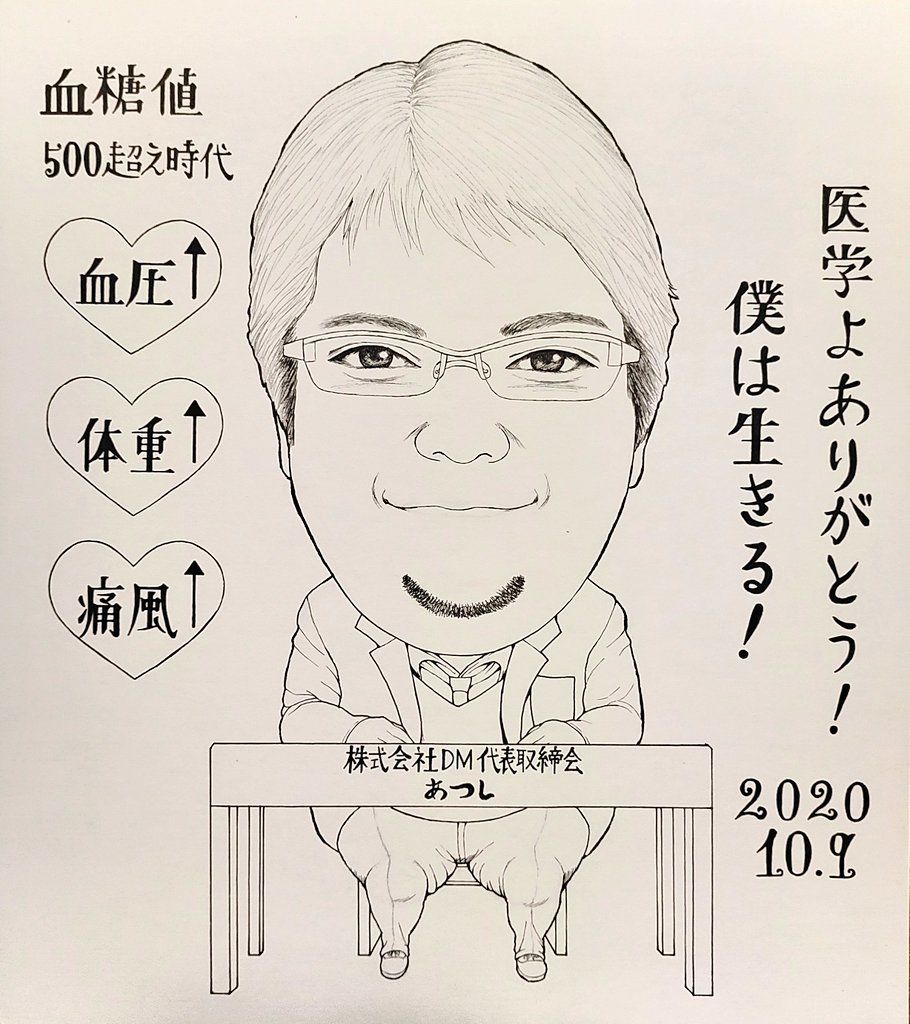 血糖値
500超え時代
血圧↑
体重↑
痛風↑
医学よありがとう!
僕は生きる!
株式会社DM代表取締会
あつし
2020
10.9